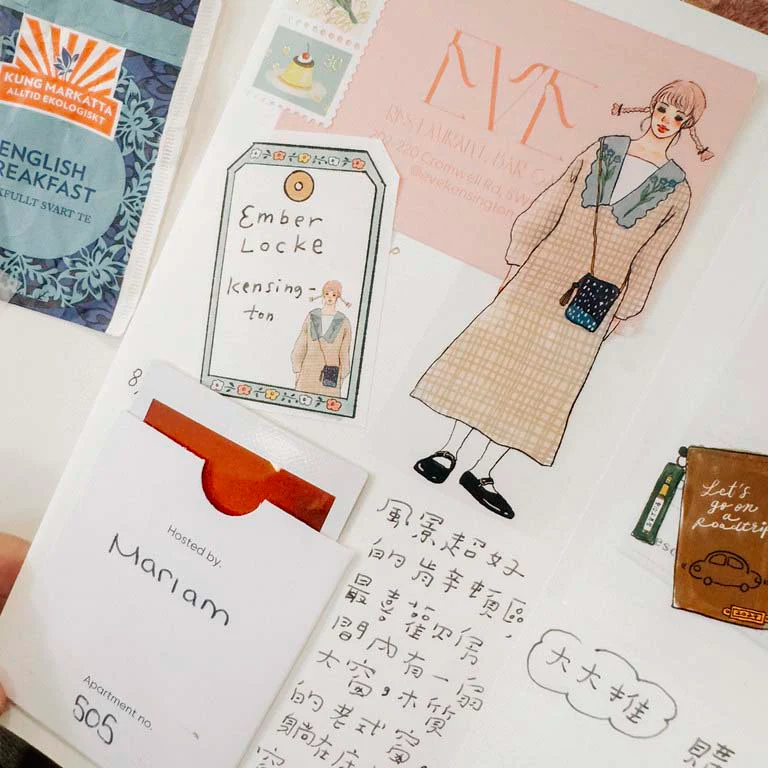 KUNG MARKATTA
ALLTID EKOLOGISKT
ENGLISH
REAKFAST
KFULLT SVART TE
EVE
RESTAURANT, BAR
220 Cromwell Rd, SW
@evekensington
Ember
Locke
Kensing-
ton
8
Hosted by.
Mariam
Apartment no.
505
風景超好
的肯辛頓區,
最喜歡房
間內有一扇
大窗,木質
的老式窗,
躺在床
窗
Let's
go on
a
Roadtrip
大大推
購